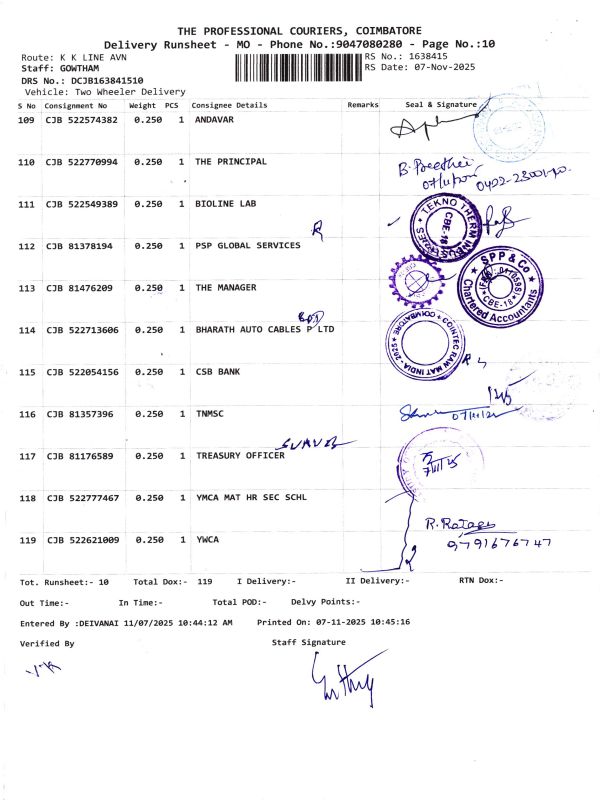 THE PROFESSIONAL COURIERS, COIMBATORE
Delivery Runsheet - MO - Phone No.:9047080280 - Page No.:10
Route: K K LINE AVN
RS No.: 1638415
Staff: GOWTHAM
RS Date: 07-Nov-2025
DRS No.: DCJB163841510
Vehicle: Two Wheeler Delivery
S No Consignment No Weight PCS Consignee Details Remarks Seal & Signature
109 CJB 522574382 0.250 1 ANDAVAR
110 CJB 522770994 0.250 1 THE PRINCIPAL
111 CJB 522549389 0.250 1 BIOLINE LAB
TEKNO THERM INDUSTRIES
CBE-18
112 CJB 81378194 0.250 1 PSP GLOBAL SERVICES
SPP & Co
CBE-18
Chartered Accountants
113 CJB 81476209 0.250 1 THE MANAGER
114 CJB 522713606 0.250 1 BHARATH AUTO CABLES P LTD
COINTEC RAW MAT INDIA-2025
COIMBATORE
115 CJB 522054156 0.250 1 CSB BANK
116 CJB 81357396 0.250 1 TNMSC
117 CJB 81176589 0.250 1 TREASURY OFFICER
118 CJB 522777467 0.250 1 YMCA MAT HR SEC SCHL
119 CJB 522621009 0.250 1 YWCA
9791676747
Tot. Runsheet:- 10 Total Dox:- 119 I Delivery:- II Delivery:- RTN Dox:-
Out Time:- In Time:- Total POD:- Delvy Points:-
Entered By :DEIVANAI 11/07/2025 10:44:12 AM Printed On: 07-11-2025 10:45:16
Verified By Staff Signature